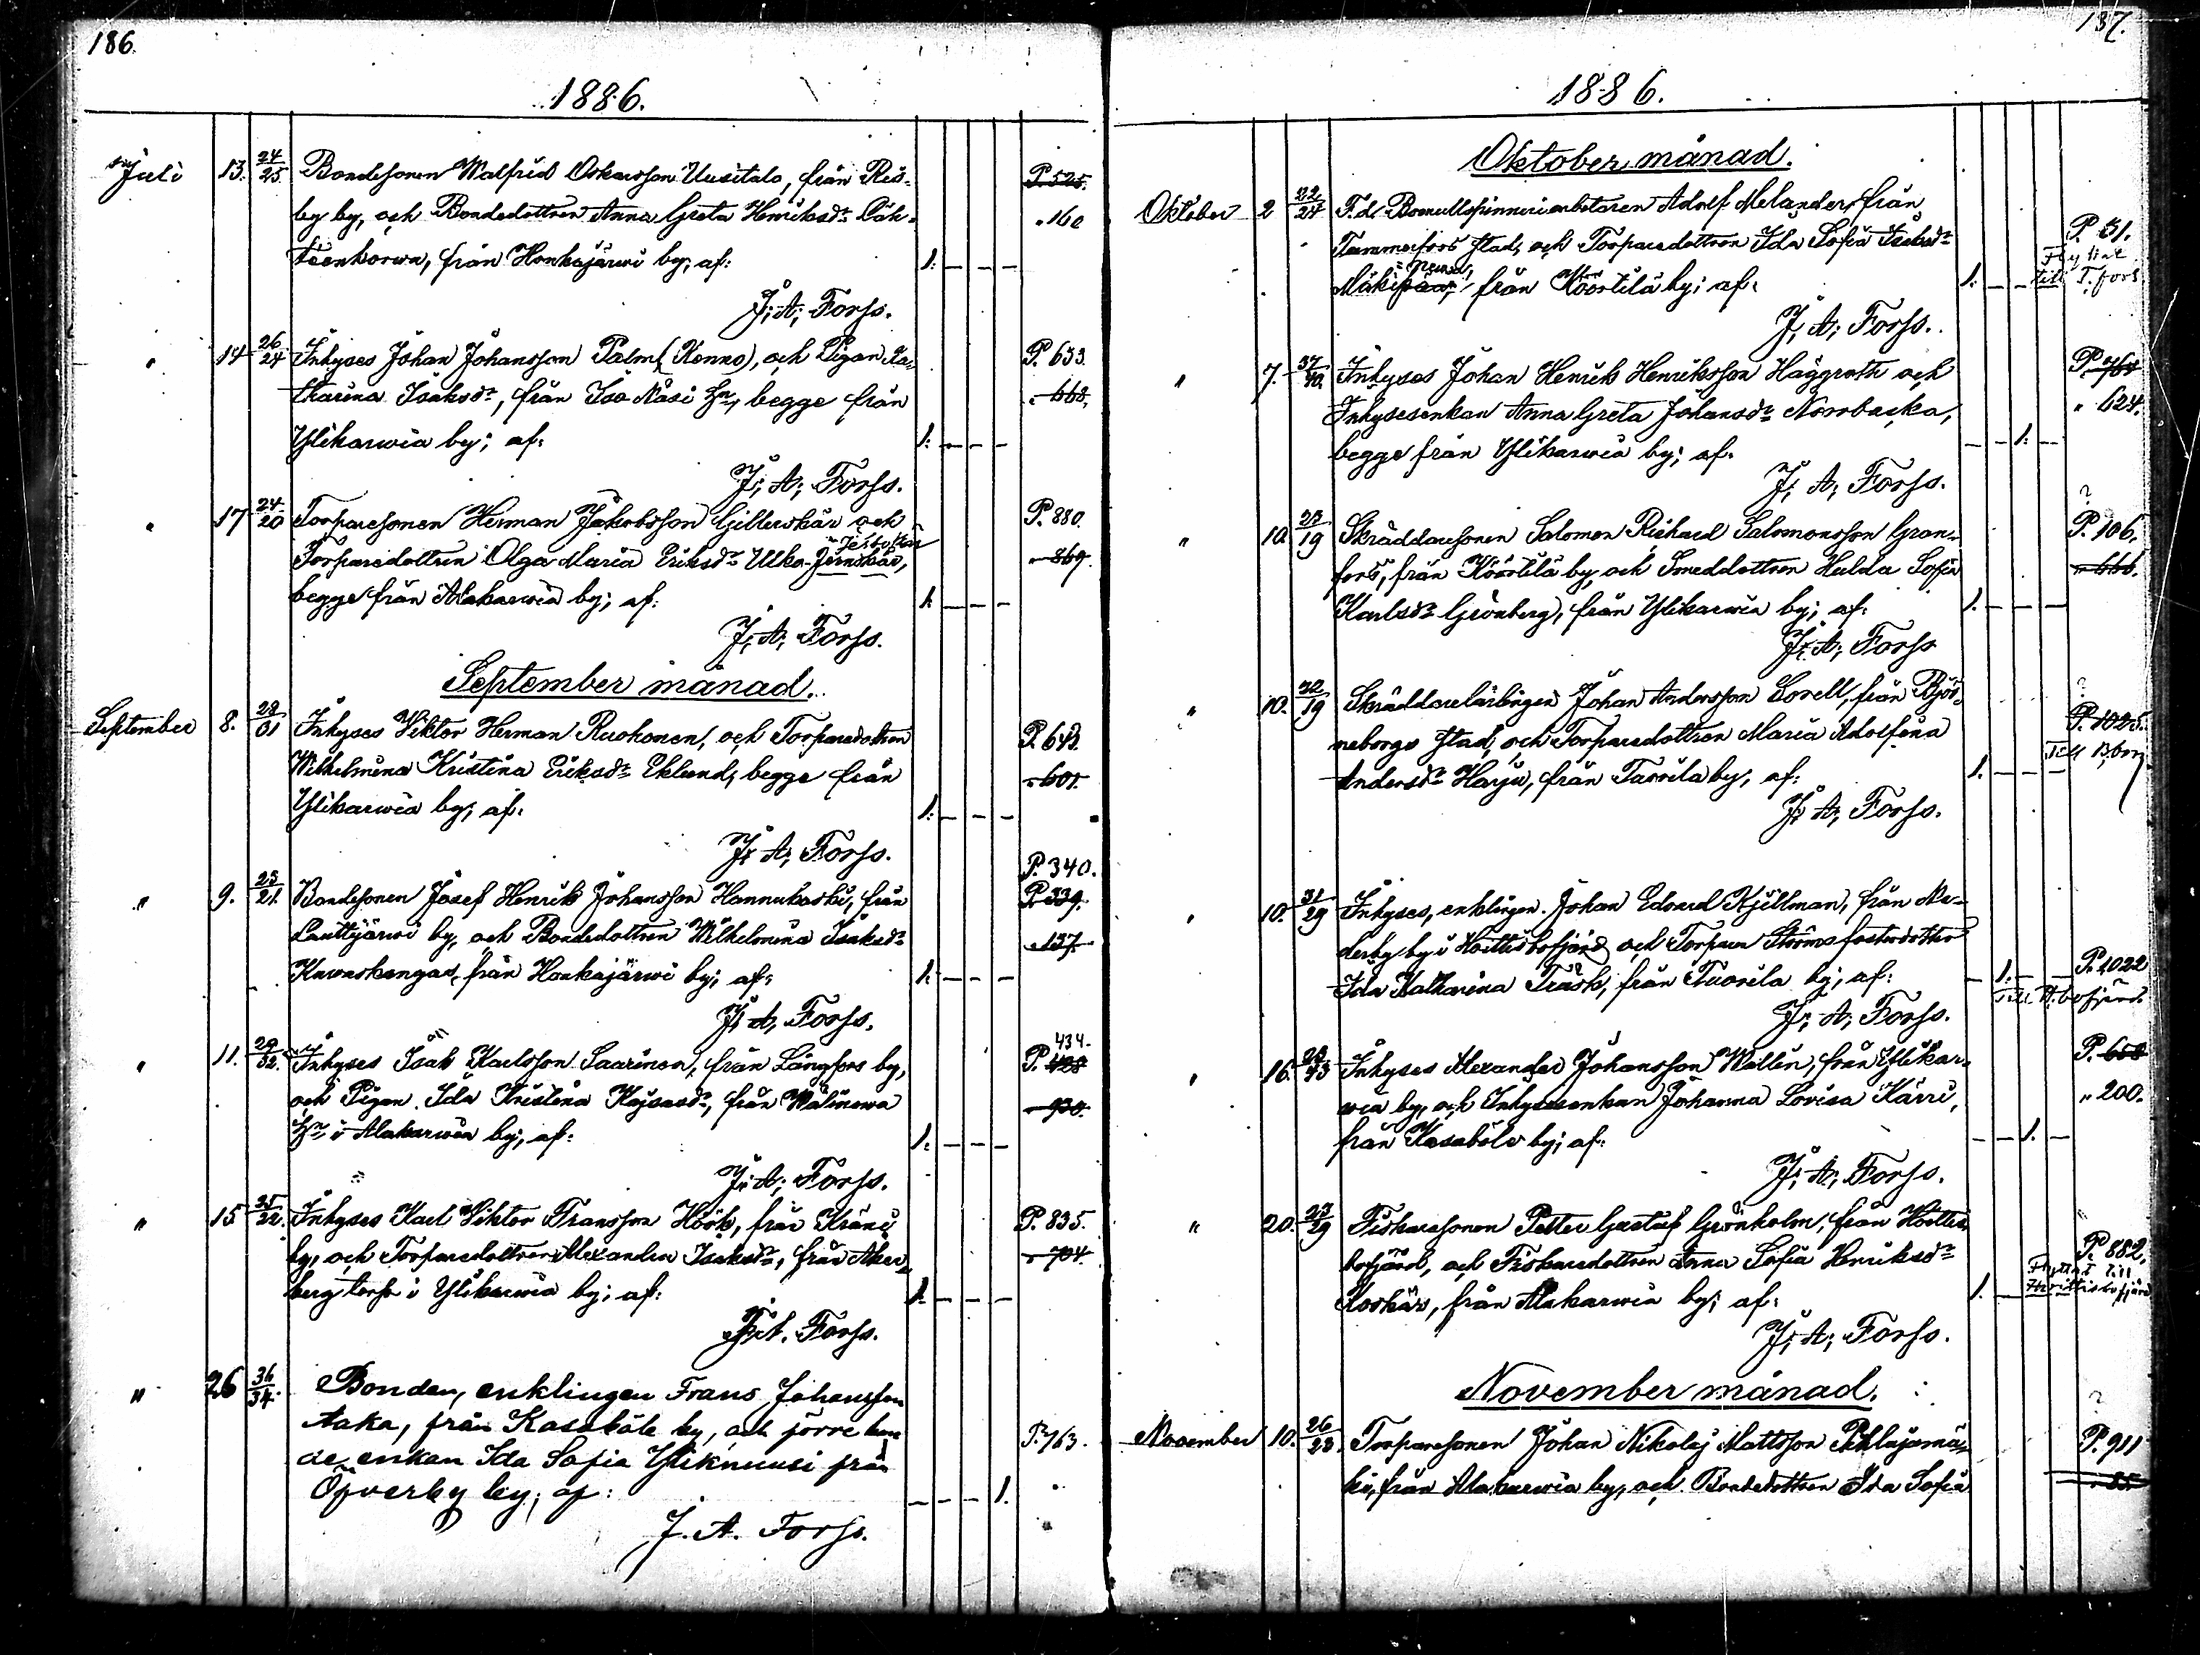 186.
1886.
Juli 13. 24/25 Bondesonen Walfrid Oskarsson Uusitalo, från Res- P. 525.
by by, och Bondedottren Anna Greta Henriksdr " 160
från Honkajärwi by; af: 1. — — —
J. A. Forss.
" 14 26/24 Inhyses Johan Johansson Palm (Kenno), och Pigan Ka- P. 633.
tharina Isaksdr, från Iso Näsi hn, begge från " 668.
Ylikarwia by; af: 1. — — —
J. A. Forss.
" 17 24/20 Torparesonen Herman Jakobsson Gillerskär och P. 880.
Torparedottren Olga Maria Eriksdr Ulko-Jernskär, " 869.
begge från Alakarwia by; af: 1. — — —
J. A. Forss.
September månad.
September 8. 28/31 Inhyses Viktor Herman Ruohonen, och Torparedottren P. 643.
Wilhelmina Kristina Eriksdr Eklund, begge från " 601.
Ylikarwia by; af: 1. — — —
J. A. Forss.
P. 340.
" 9. 25/21 Bondesonen Josef Henrik Johansson Hannukoski, från P. 339.
Lauttijärwi by, och Bondedottren Wilhelmina Isaksdr " 137.
Kuwaskangas, från Honkajärwi by; af: 1. — — —
J. A. Forss.
434.
" 11. 29/32 Inhyses Isak Karlsson Saarinen, från Långfors by, P. 428
och Pigan Ida Kristina Kajsasdr, från Wälinewa " 930.
hn i Alakarwia by; af: 1. — — —
J. A. Forss.
" 15 25/22 Inhyses Karl Viktor Fransson Höök, från Kråni P. 835.
by, och Torparedottren Alexandra Isaksdr, från Åker- " 704.
berg torp i Ylikarwia by; af: 1. — — —
J. A. Forss.
" 26 36/34 Bonden, enklingen Frans Johansson
Aaka, från Kasaböle by, och förre bon- P. 763.
de enkan Ida Sofia Yliknuusi från
Öfverby by; af: — — — 1.
J. A. Forss.
137.
1886.
Oktober månad.
Oktober 2 22/24 F. d. Bomullsspinneriarbetaren Adolf Melander, från
Tammerfors stad, och Torparedottren Ida Sofia Isaksdr P. 31.
Flyttat
från Köörtilä by; af: 1. — — till T.fors
J. A. Forss.
" 7. 37/40 Inhyses Johan Henrik Henriksson Häggroth och P. 764
Inhysesenkan Anna Greta Johansdr Norrbacka, " 624.
begge från Ylikarwia by; af: — — 1. —
J. A. Forss.
?
" 10. 25/19 Skräddaresonen Salomon Richard Salomonsson Gran- P. 106.
fors, från Köörtilä by och Smeddottren Hulda Sofia " 666.
Karlsdr Grönberg, från Ylikarwia by; af: 1. — — —
J. A. Forss
?
" 10. 32/19 Skräddarelärlingen Johan Andersson Lorell, från Björ- P. 1025.
neborgs stad, och Torparedottren Maria Adolfina Till B.borg
Andersdr Harju, från Tuorila by; af: 1. — — —
J. A. Forss.
" 10. 31/29 Inhyses, enklingen Johan Edvard Kjellman, från Me-
derby by i Hvittisbofjärd, och Torparen Ströms fosterdotter
Ida Katharina Träsk, från Tuorila by; af: — 1. — — P. 1022
Till H.bofjärd.
J. A. Forss.
" 16. 28/43 Inhyses Alexander Johansson Wallin, från Ylikar- P. 658
wia by, och Inhysesenkan Johanna Lovisa Kärri, " 200.
från Kasaböle by; af: — — 1. —
J. A. Forss.
" 20. 23/29 Fiskaresonen Petter Gustaf Grönholm, från Hvittis-
bofjärd, och Fiskaredottren Anna Sofia Henriksdr P. 882.
Flyttat till
från Alakarwia by; af: 1. — Hvittisbofjärd
J. A. Forss.
November månad.
?
November 10. 26/23 Torparesonen Johan Nikolaj Mattsson Pihlajamä- P. 911
ki, från Alakarwia by, och Bondedottren Ida Sofia